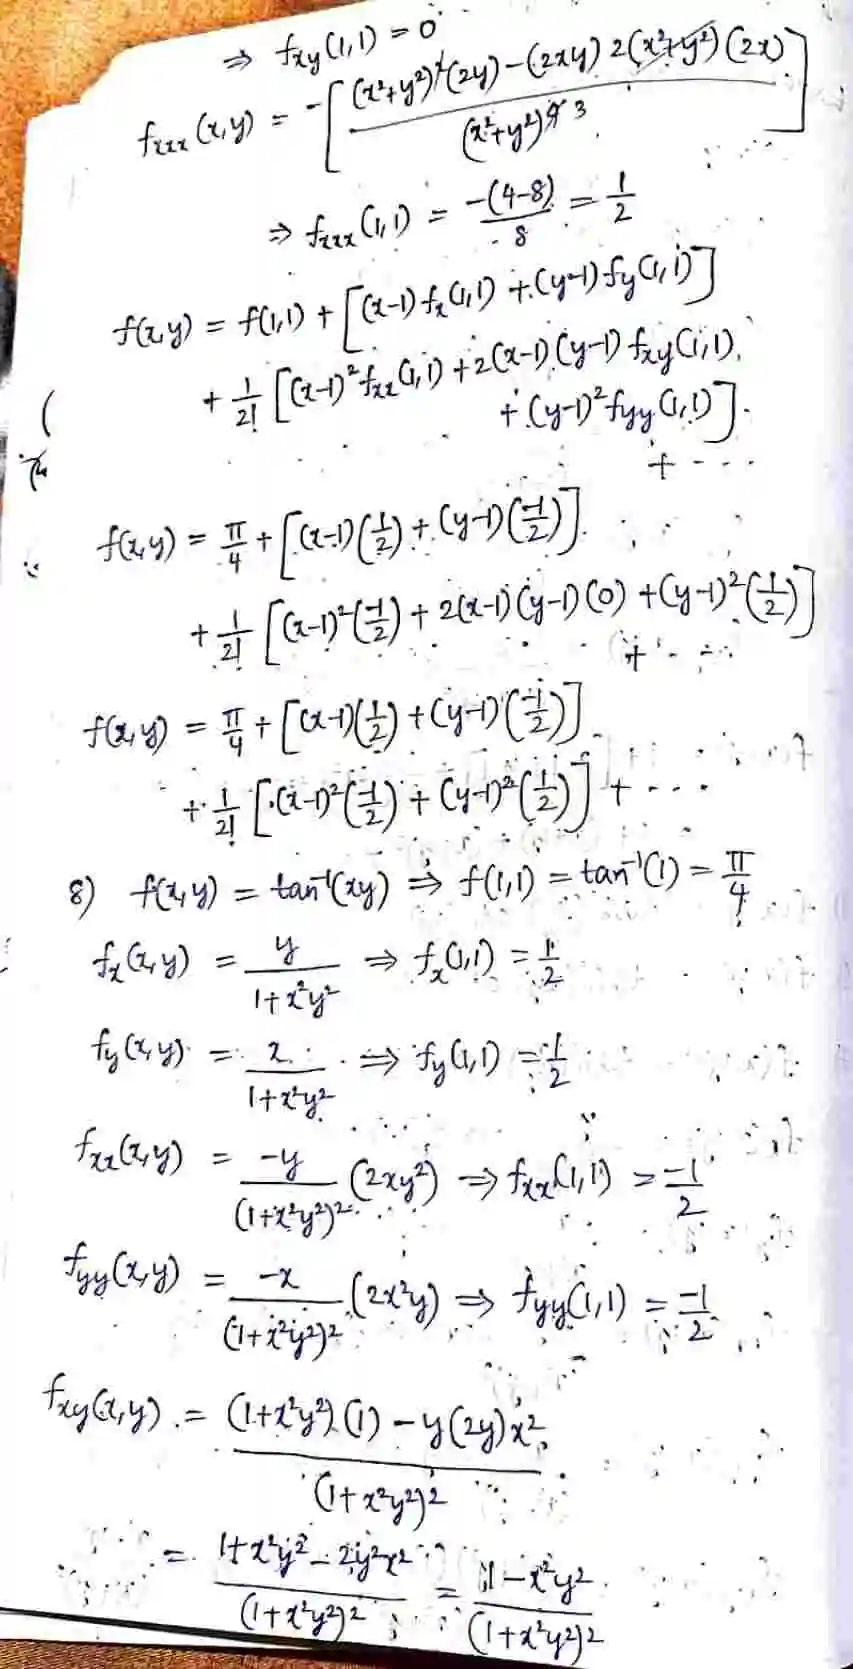 ⇒ fxy(1,1) = 0
fxxx(x,y) = -[(x²+y²)²(2y) - (2xy) 2(x²+y²)(2x) / (x²+y²)⁴ 3]
⇒ fxxx(1,1) = -(4-8)/8 = 1/2
f(x,y) = f(1,1) + [(x-1) fx(1,1) + (y-1) fy(1,1)]
+ 1/2! [(x-1)² fxx(1,1) + 2(x-1)(y-1) fxy(1,1)
+ (y-1)² fyy(1,1)]
+ ---
f(x,y) = π/4 + [(x-1)(1/2) + (y-1)(-1/2)]
+ 1/2! [(x-1)²(-1/2) + 2(x-1)(y-1)(0) + (y-1)²(1/2)]
+ ---
f(x,y) = π/4 + [(x-1)(1/2) + (y-1)(-1/2)]
+ 1/2! [(x-1)²(-1/2) + (y-1)²(1/2)] + ---
8) f(x,y) = tan⁻¹(xy) ⇒ f(1,1) = tan⁻¹(1) = π/4
fx(x,y) = y/(1+x²y²) ⇒ fx(1,1) = 1/2
fy(x,y) = x/(1+x²y²) ⇒ fy(1,1) = 1/2
fxx(x,y) = -y/(1+x²y²)² (2xy²) ⇒ fxx(1,1) = -1/2
fyy(x,y) = -x/(1+x²y²)² (2x²y) ⇒ fyy(1,1) = -1/2
fxy(x,y) = (1+x²y²)(1) - y(2y)x² / (1+x²y²)²
= 1+x²y² - 2y²x² / (1+x²y²)² = 1-x²y² / (1+x²y²)²